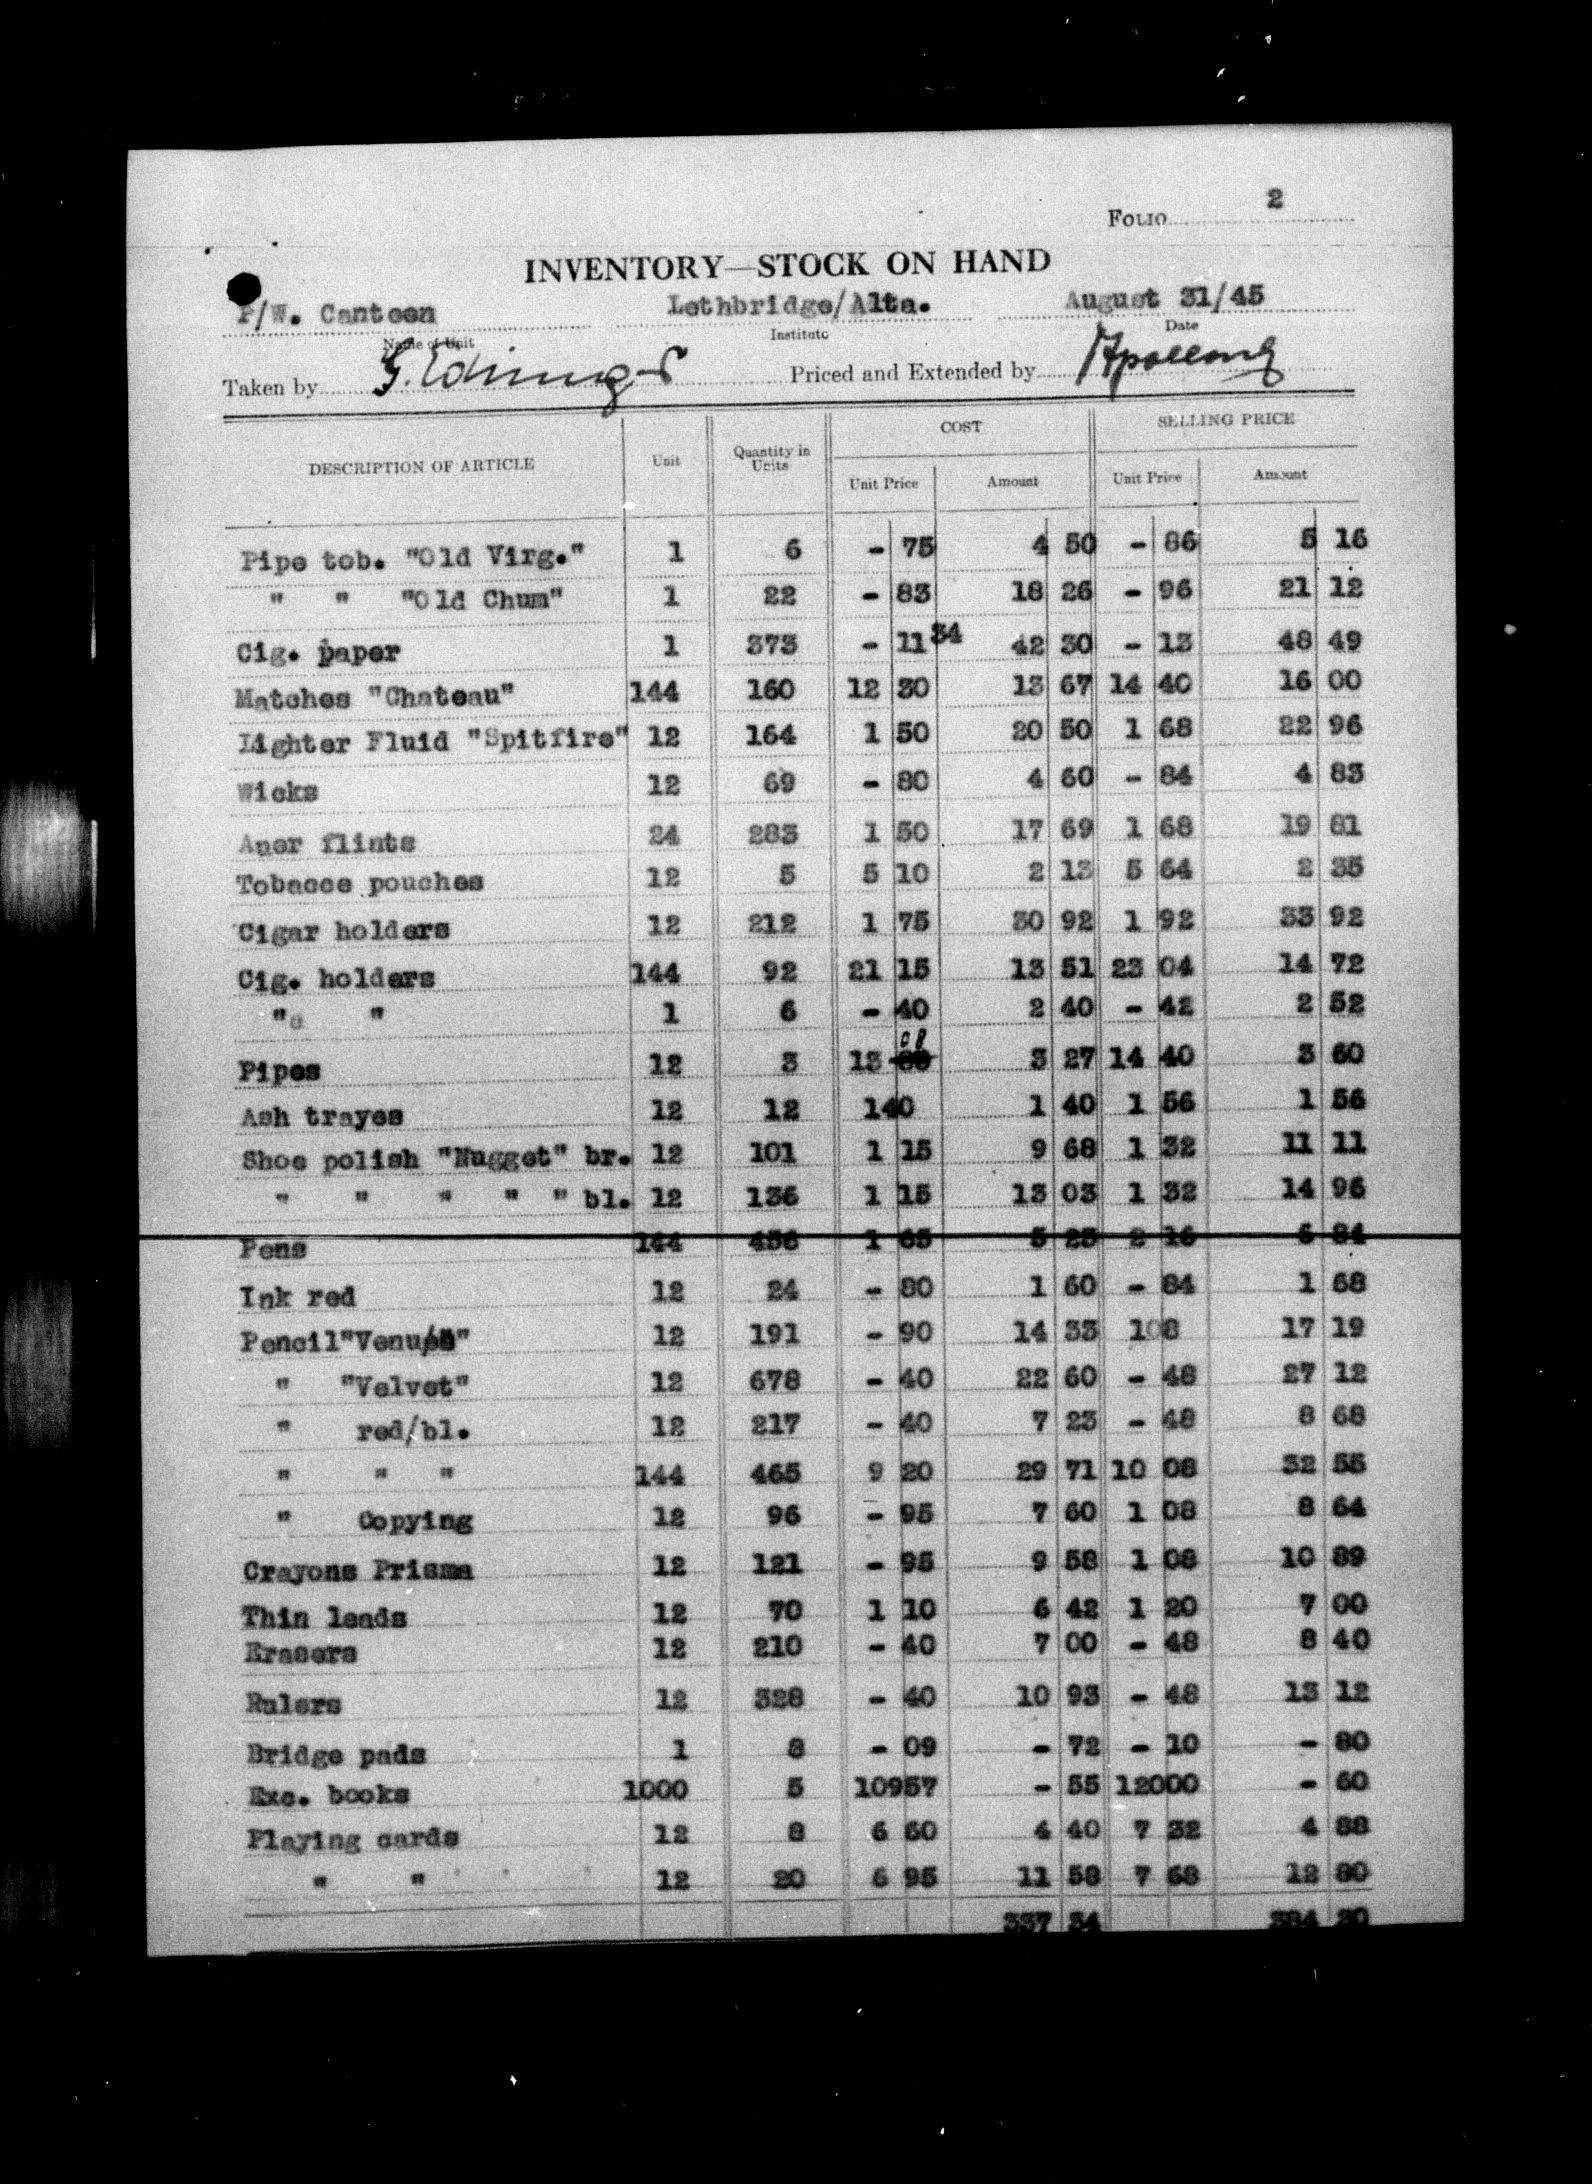 2
FOLIO
INVENTORY—STOCK ON HAND
P/W. Canteen Lethbridge/Alta. August 31/45
Name of Unit Institute Date
Taken by Priced and Extended by
COST SELLING PRICE
DESCRIPTION OF ARTICLE Unit Quantity in Units Unit Price Amount Unit Price Amount
Pipe tob. "Old Virg." 1 6 - 75 4 50 - 86 5 16
" " "Old Chum" 1 22 - 83 18 26 - 96 21 12
Cig. paper 1 373 - 11 34 42 30 - 13 48 49
Matches "Chateau" 144 160 12 30 13 67 14 40 16 00
Lighter Fluid "Spitfire" 12 164 1 50 20 50 1 68 22 96
Wicks 12 69 - 80 4 60 - 84 4 83
Auer flints 24 283 1 50 17 69 1 68 19 81
Tobacco pouches 12 5 5 10 2 13 5 64 2 35
Cigar holders 12 212 1 75 30 92 1 92 33 92
Cig. holders 144 92 21 15 13 51 23 04 14 72
" " 1 6 - 40 2 40 - 42 2 52
Pipes 12 3 13 08 3 27 14 40 3 60
Ash trayes 12 12 140 1 40 1 56 1 56
Shoe polish "Nugget" br. 12 101 1 15 9 68 1 32 11 11
" " " " " bl. 12 136 1 15 13 03 1 32 14 96
Pens 144 456 1 65 5 23 2 16 6 84
Ink red 12 24 - 80 1 60 - 84 1 68
Pencil "Venus" 12 191 - 90 14 33 108 17 19
" "Velvet" 12 678 - 40 22 60 - 48 27 12
" red/bl. 12 217 - 40 7 23 - 48 8 68
" " " 144 465 9 20 29 71 10 08 32 55
" Copying 12 96 - 95 7 60 1 08 8 64
Crayons Prisma 12 121 - 95 9 58 1 08 10 89
Thin leads 12 70 1 10 6 42 1 20 7 00
Erasers 12 210 - 40 7 00 - 48 8 40
Rulers 12 328 - 40 10 93 - 48 13 12
Bridge pads 1 8 - 09 - 72 - 10 - 80
Exc. books 1000 5 10957 - 55 12000 - 60
Playing cards 12 8 6 60 4 40 7 32 4 88
" " 12 20 6 95 11 58 7 68 12 80
337 34 384 20